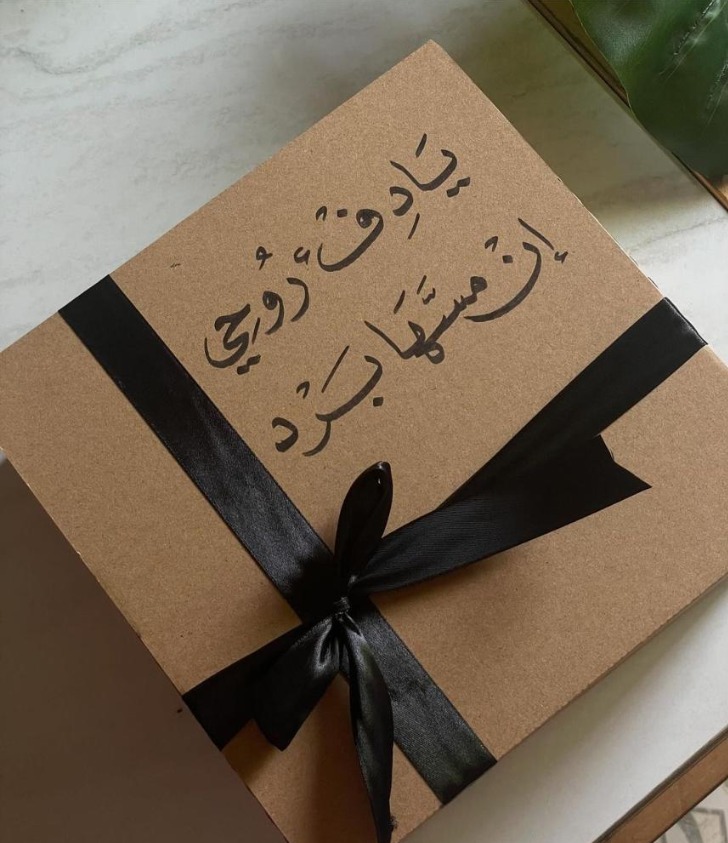 يَادِفْء رُوحِي
إنْ مسَّهَا بَرْد